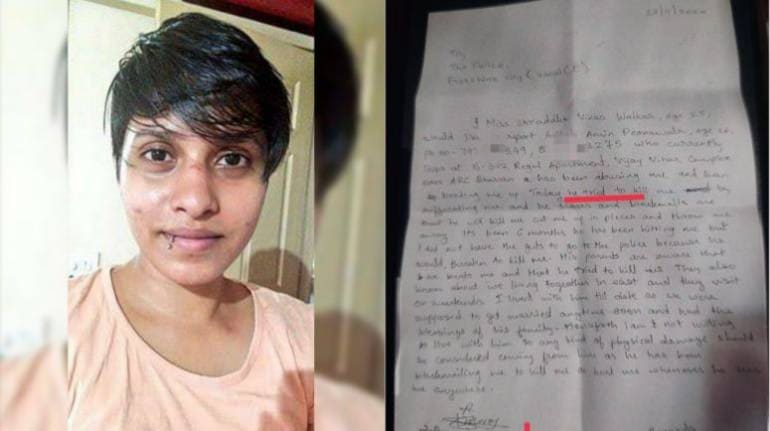 23/11/2020
To,
The Police,
I Miss Shraddha Vikas Walkar, age 25,
would like report Amin Poonawala, age 26,
ph no - 79 349, 8 4275 who currently
stays at B-302 Regal Apartment, Vijay Vihar Complex
ABC has been abusing me and
beating me up. Today he tried to kill me by
suffocating me and he and blackmails me
that he will kill me cut me up in pieces and throw me
away. Its been 6 months he has been hitting me but
I did not have the guts to go to the police because he
would threaten to kill me. His parents are aware that
he beats me and that he tried to kill me. They also
know about we living together in and they visit
on weekends. I lived with him till date as we were
supposed to get married anytime soon and had the
blessings of his family. Henceforth I am not willing
to live with him so any kind of physical damage should
be considered coming from him as he has been
blackmailing me to kill me or hurt me whenever he sees
me anywhere.